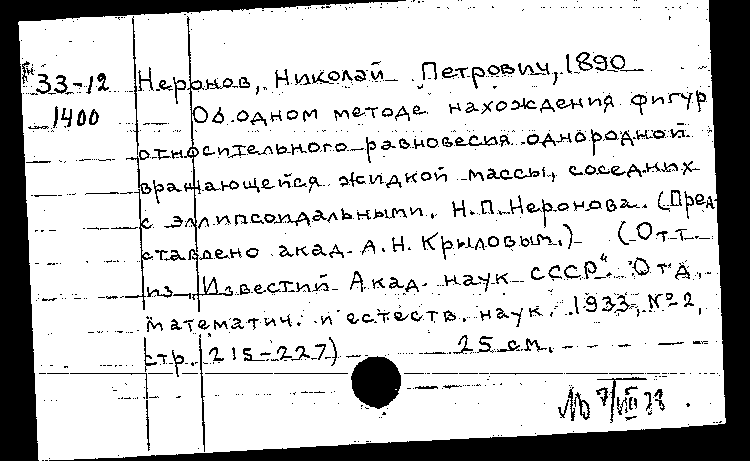 33-12 Неронов, Николай Петрович, 1890
1400 Об одном методе нахождения фигур
относительного равновесия однородной
вращающейся жидкой массы, соседних
с эллипсоидальными. Н.П. Неронова. (Пред-
ставлено акад. А.Н. Крыловым.) (Отт.
из „Известий Акад. наук СССР“. Отд.
математич. и естеств. наук. 1933, № 2,
стр. 215-227) 25 см.
7/VIII 38.